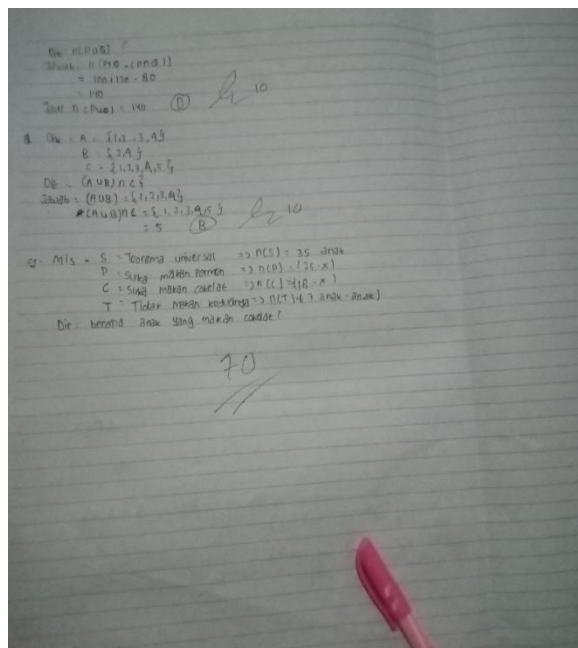 Dit n(PUQ) ?
Jawab. n(P+Q - (PnQ))
= 100+120 - 80
= 140
Jadi n (PUQ) = 140 D 10
8 Dik = A = {1,2,3,4}
B = {3,4}
C = {1,2,3,4,5}
Dit = (AUB) n C
Jawab = (AUB) = {1,2,3,4}
(AUB)nC = {1,2,3,4,5}
= 5 B 10
9. Mis = S = Teorema universal => n(S) = 35 anak
P = Suka makan permen => n(P) = (25-x)
C = Suka makan cokelat => n(C) = (18-x)
T = Tidak makan keduanya => n(T) = (7 anak-anak)
Dit = berapa anak yang makan cokelat?
70